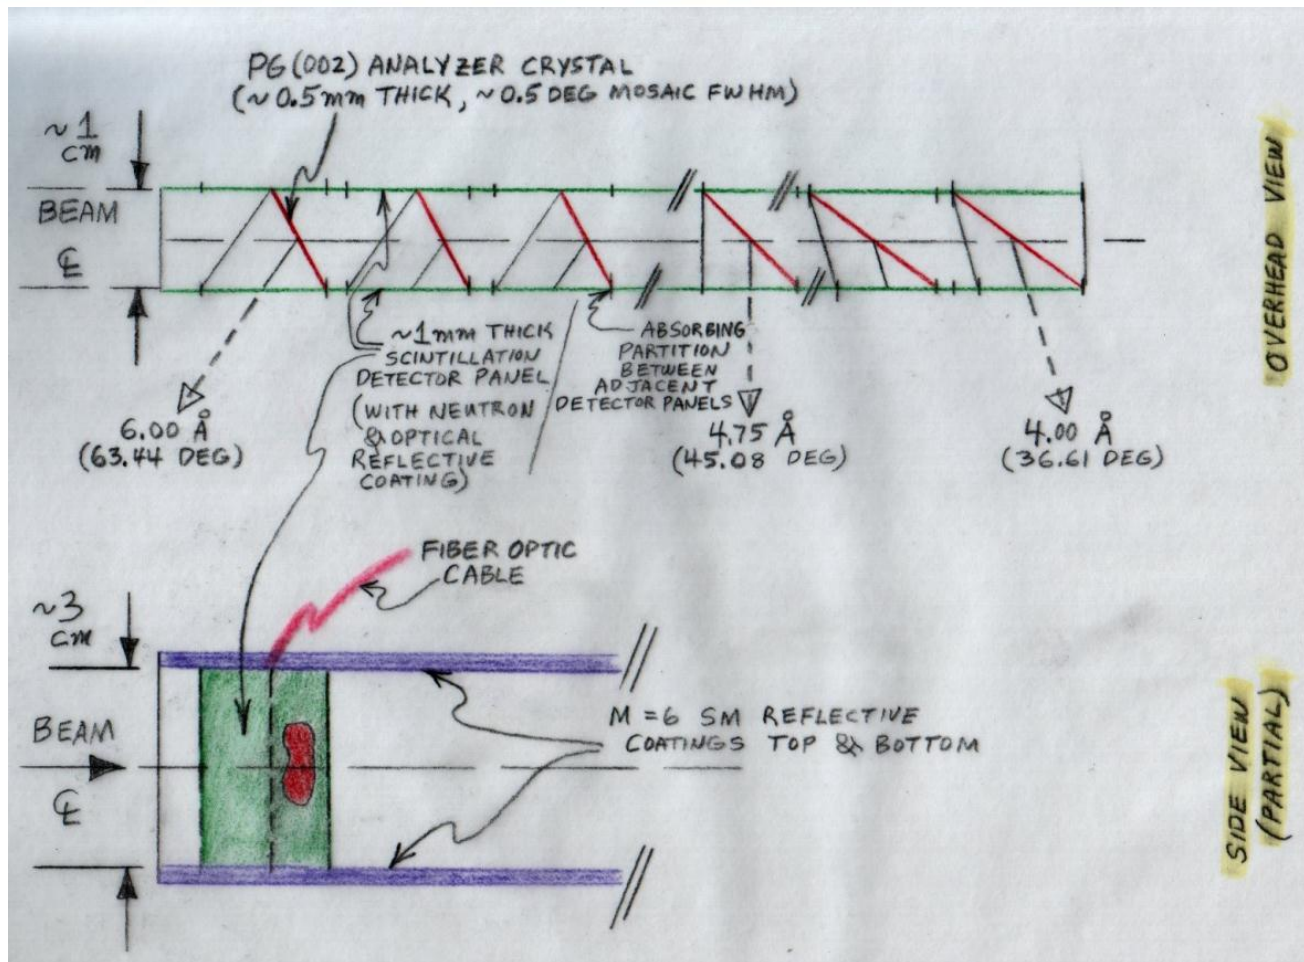 PG(002) ANALYZER CRYSTAL
(~0.5mm THICK, ~0.5 DEG MOSAIC FWHM)
~1
cm
BEAM
℄
OVERHEAD VIEW
~1mm THICK
SCINTILLATION
DETECTOR PANEL
(WITH NEUTRON
& OPTICAL
REFLECTIVE
COATING)
ABSORBING
PARTITION
BETWEEN
ADJACENT
DETECTOR PANELS
6.00 Å
(63.44 DEG)
4.75 Å
(45.08 DEG)
4.00 Å
(36.61 DEG)
FIBER OPTIC
CABLE
~3
cm
BEAM
℄
M=6 SM REFLECTIVE
COATINGS TOP & BOTTOM
SIDE VIEW
(PARTIAL)